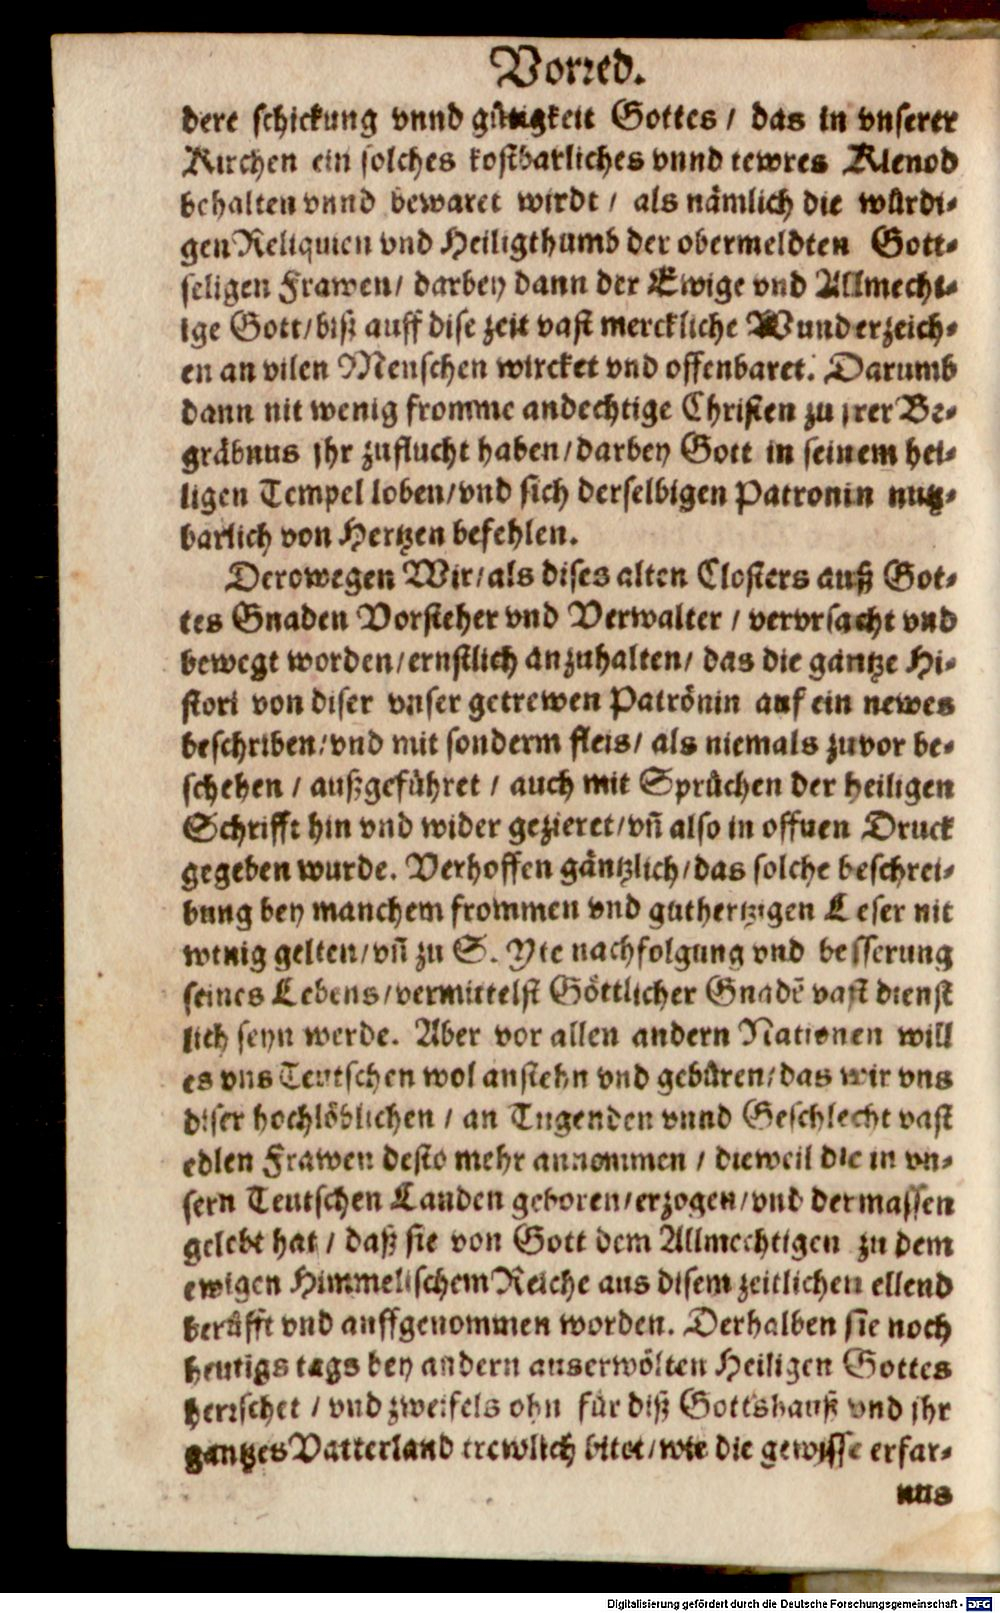 Vorred.
dere schickung vnnd gůtigkeit Gottes / das in vnserer
Kirchen ein solches kostbarliches vnnd tewres Klenod
behalten vnnd bewaret wirdt / als nämlich die wůrdi-
gen Reliquien vnd Heiligthumb der obermeldten Gott-
seligen Frawen / darbey dann der Ewige vnd Allmecht-
ige Gott / biß auff dise zeit vast merckliche Wunderzeich-
en an vilen Menschen wircket vnd offenbaret. Darumb
dann nit wenig fromme andechtige Christen zu jrer Be-
gräbnus jhr zuflucht haben / darbey Gott in seinem hei-
ligen Tempel loben / vnd sich derselbigen Patronin nutz-
barlich von Hertzen befehlen.
Derowegen Wir / als dises alten Closters auß Got-
tes Gnaden Vorsteher vnd Verwalter / vervrsacht vnd
bewegt worden / ernstlich anzuhalten / das die gantze Hi-
stori von diser vnser getrewen Patrönin auf ein newes
beschriben / vnd mit sonderm fleis / als niemals zuvor be-
schehen / außgeführet / auch mit Sprůchen der heiligen
Schrifft hin vnd wider gezieret / vñ also in offnen Druck
gegeben wurde. Verhoffen gäntzlich / das solche beschrei-
bung bey manchem frommen vndguthertzigen Leser nit
wenig gelten / vñ zu S. Yte nachfolgung vnd besserung
seines Lebens / vermittelst Göttlicher Gnadẽ vast dienst
lich seyn werde. Aber vor allen andern Nationen will
es vns Teutschen wol anstehn vnd gebůren / das wir vns
diser hochlöblichen / an Tugenden vnnd Geschlecht vast
edlen Frawen desto mehr annommen / dieweil die in vn-
sern Teutschen Landen geboren / erzogen / vnd dermassen
gelebt hat / daß sie von Gott dem Allmechtigen zu dem
ewigen Himmelischem Reiche aus disem zeitlichen ellend
berůfft vnd auffgenommen worden. Derhalben sie noch
heutigs tags bey andern auserwölten Heiligen Gottes
herrschet / vnd zweifels ohn für diß Gottshauß vnd jhr
gantzes Vatterland trewlich bitet / wie die gewisse erfar-
nus
Digitalisierung gefördert durch die Deutsche Forschungsgemeinschaft - DFG